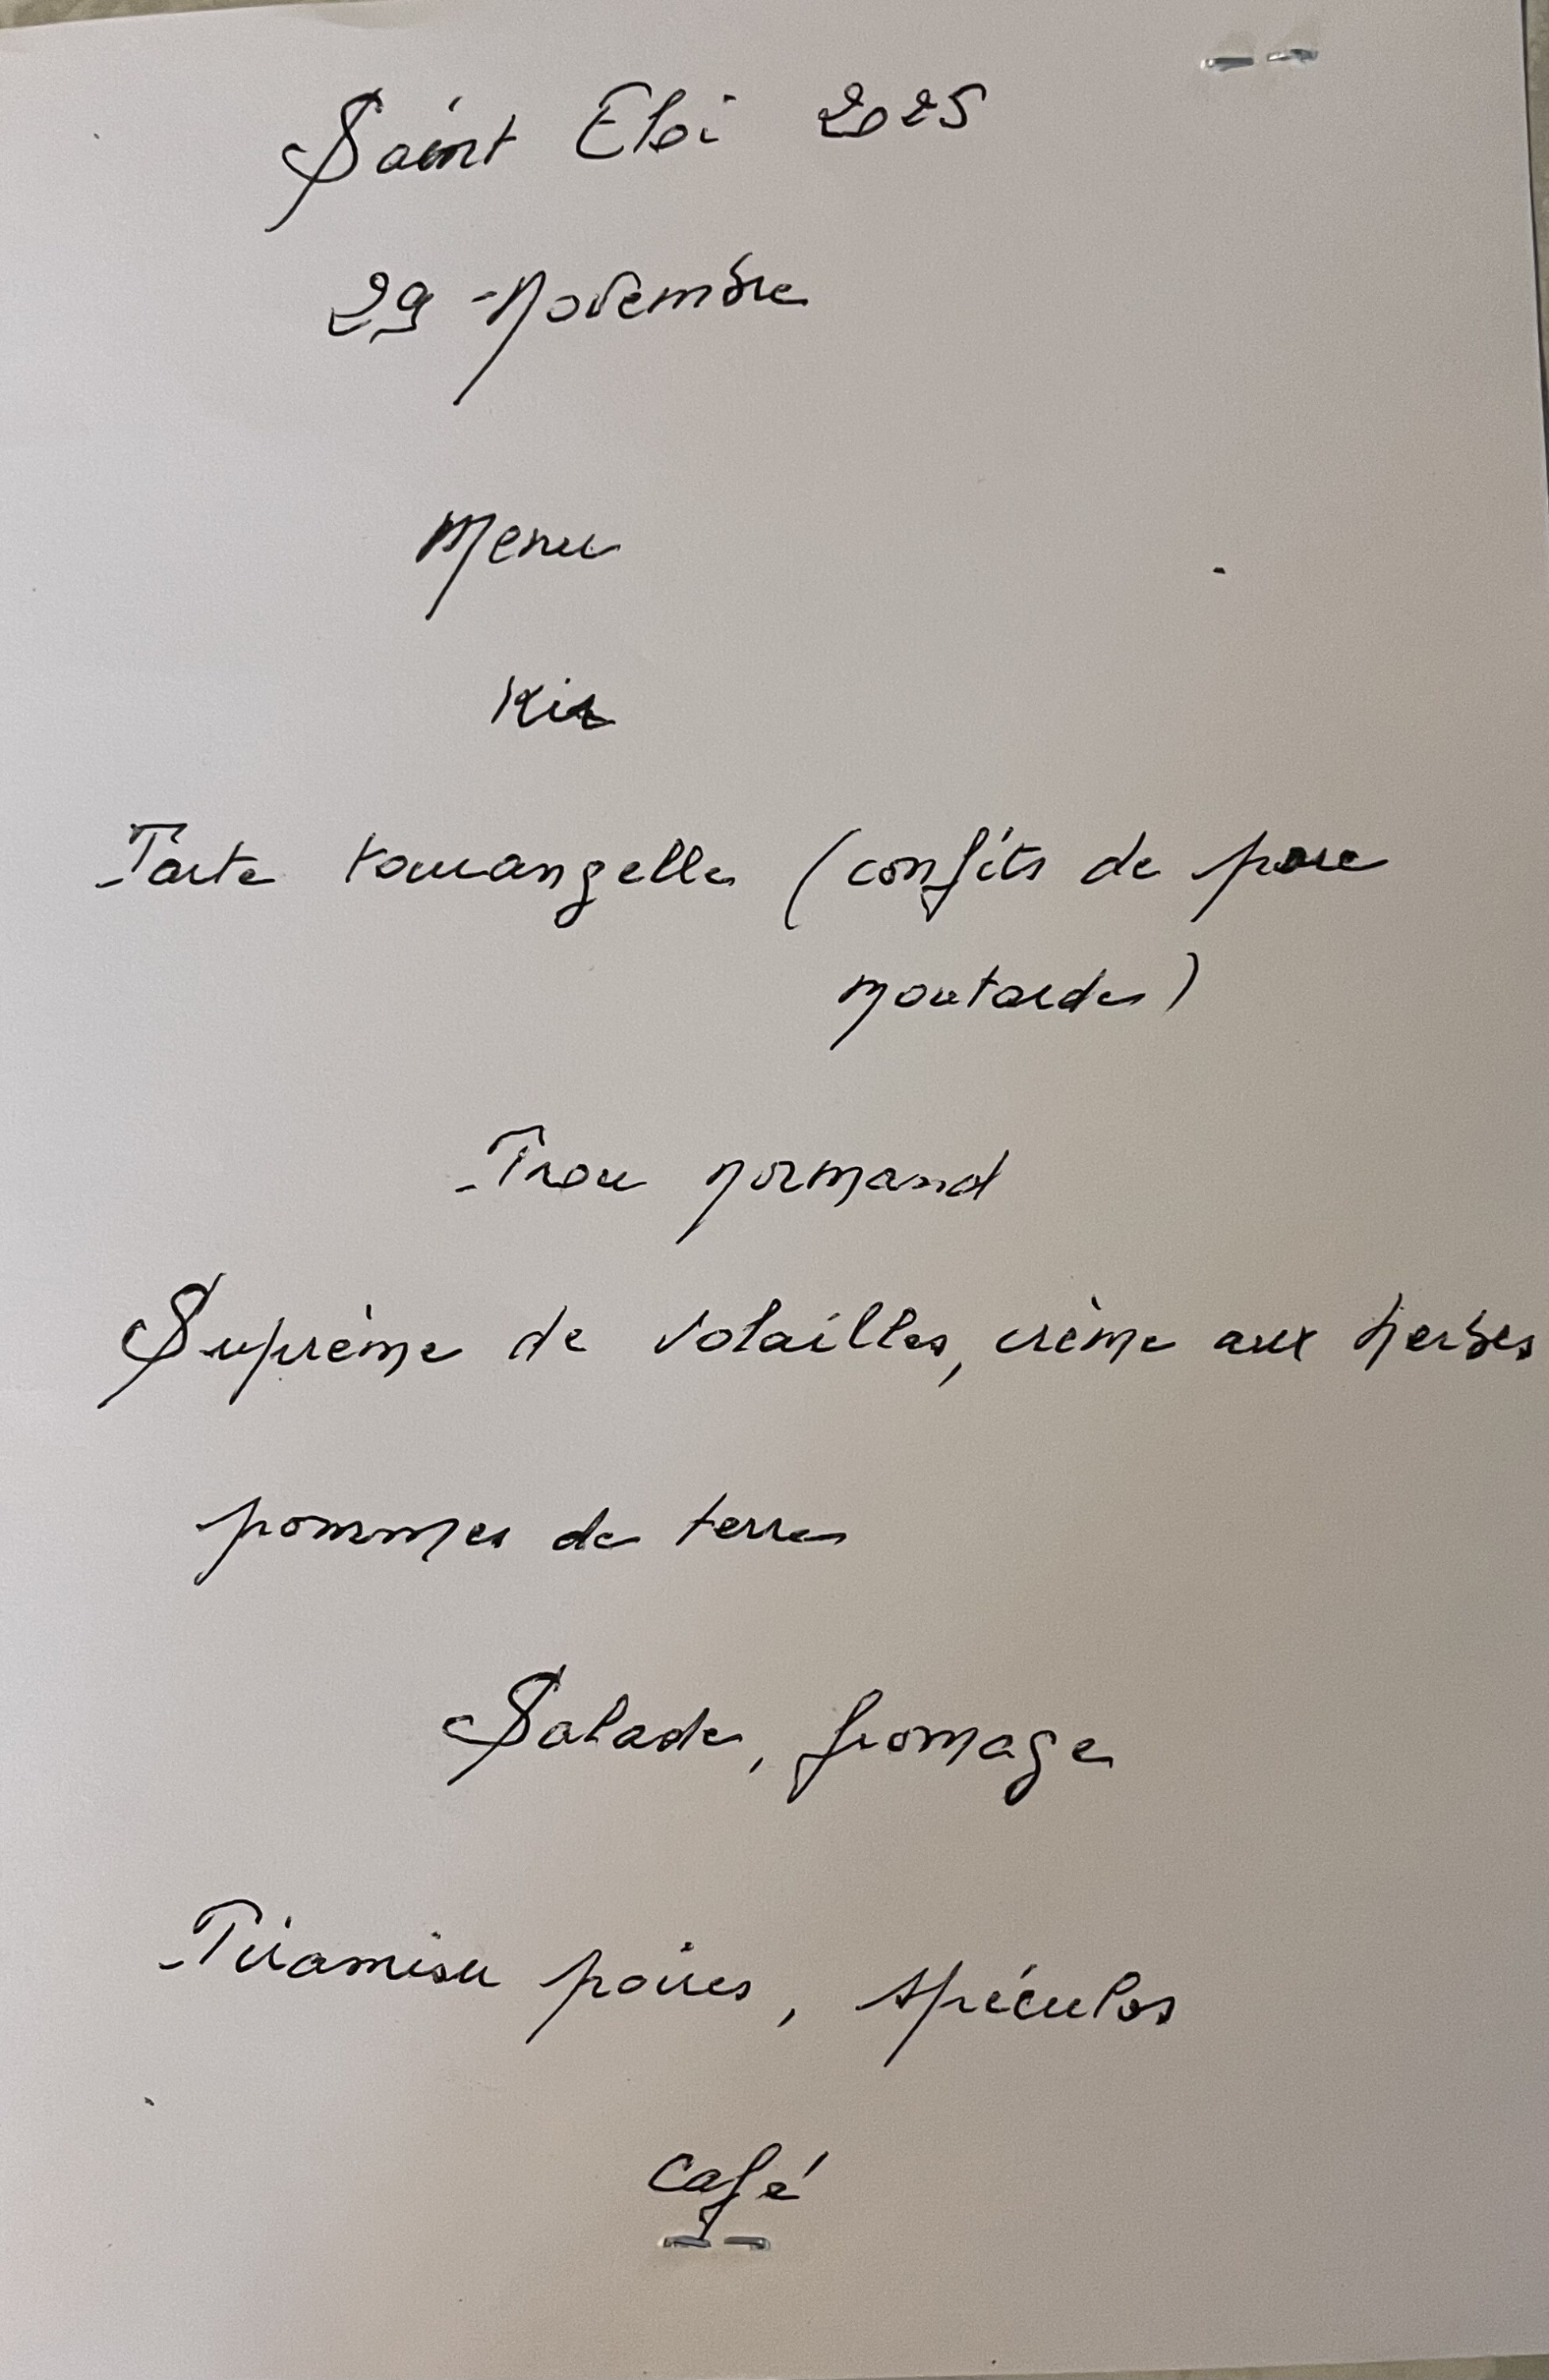 Saint Eloi 2025
29 Novembre
Menu
Kir
Tarte tourangelle (confits de porc
moutarde)
Trou normand
Suprême de volailles, crème aux herbes
pommes de terre
Salade, fromage
Tiramisu poires, spéculos
Café